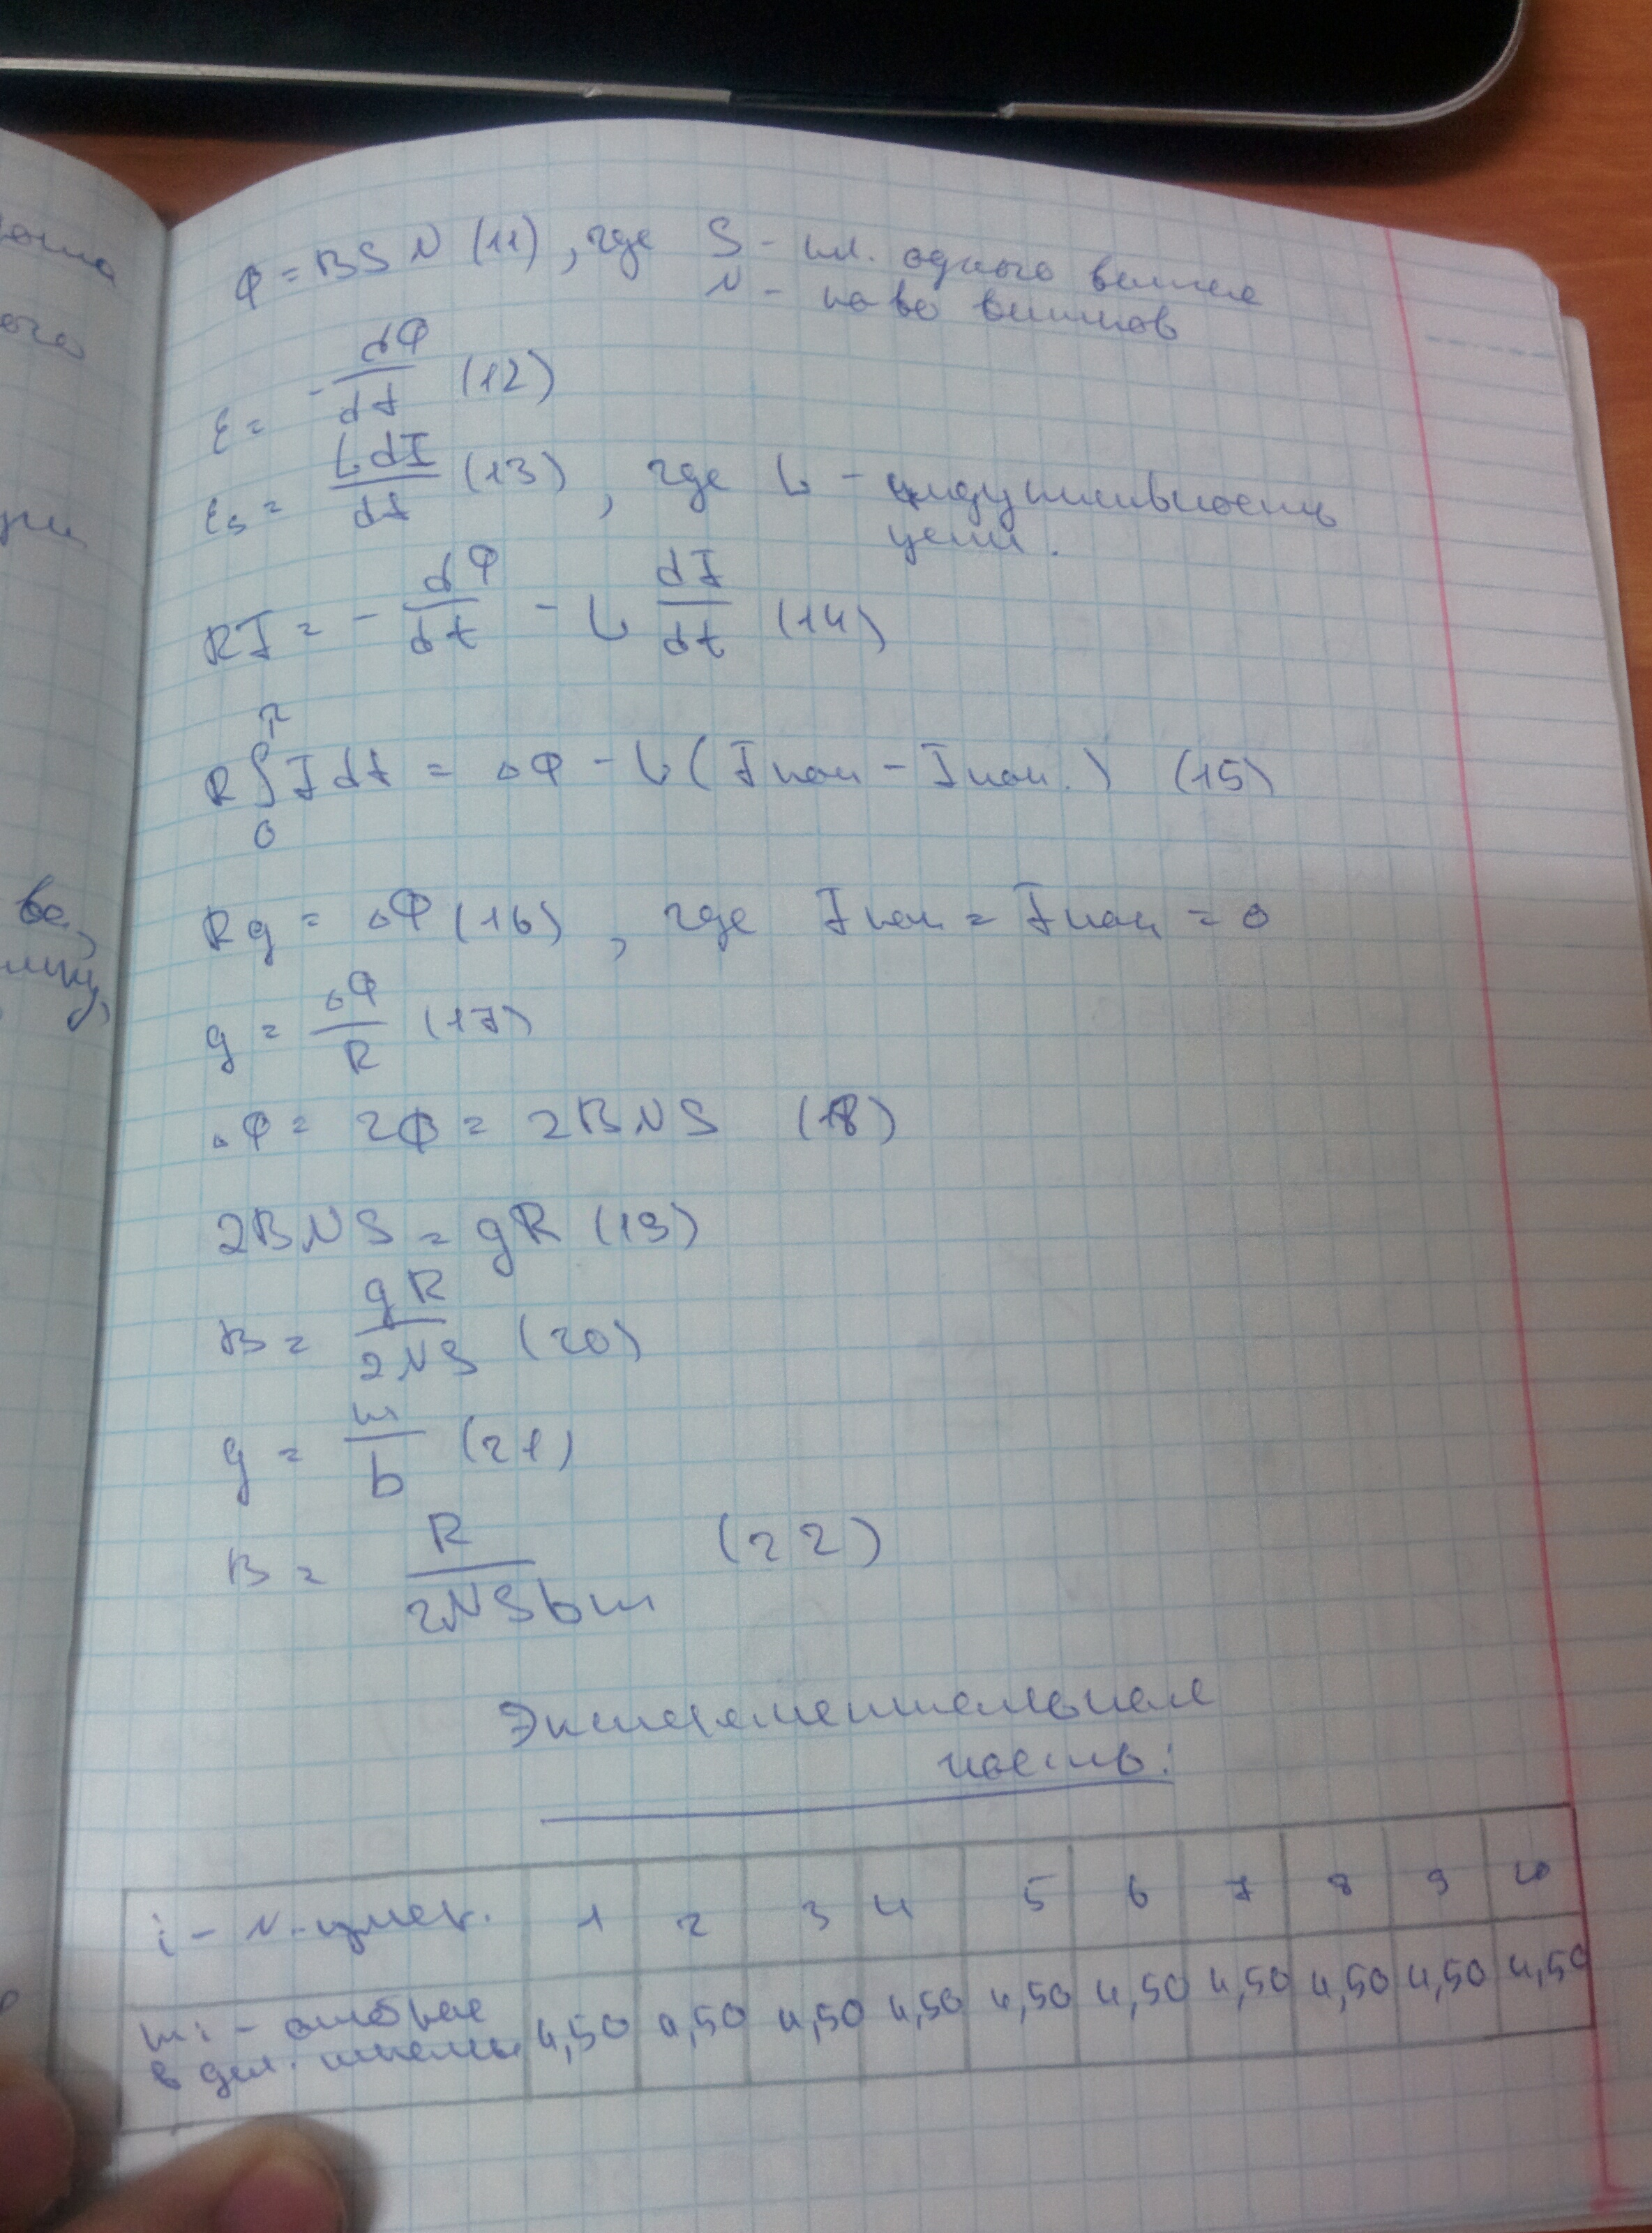 Ф = BSN (11), где S - пл. одного витка
N - кол-во витков
ε = - dФ/dt (12)
εs = LdI/dt (13), где L - индуктивность
цепи.
RI = - dФ/dt - L dI/dt (14)
R∫₀^τ Idt = ΔФ - L(Iкон - Iнач.) (15)
Rg = ΔФ (16), где Iнач = Iкон = 0
g = ΔФ/R (17)
ΔФ = 2Ф = 2BNS (18)
2BNS = gR (19)
B = gR/2NS (20)
g = m/b (21)
B = R/2NSbm (22)
Экспериментальная
часть:
i - N-измер. 1 2 3 4 5 6 7 8 9 10
mi - отброс 4,50 4,50 4,50 4,50 4,50 4,50 4,50 4,50 4,50 4,50
в дел. шкалы